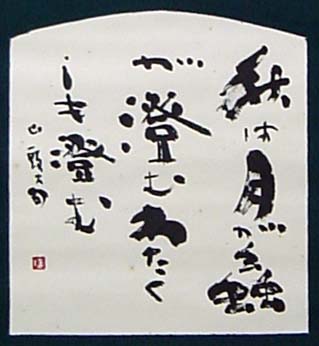 秋は月が蟲
が澄むわたく
しも澄む
山頭火句